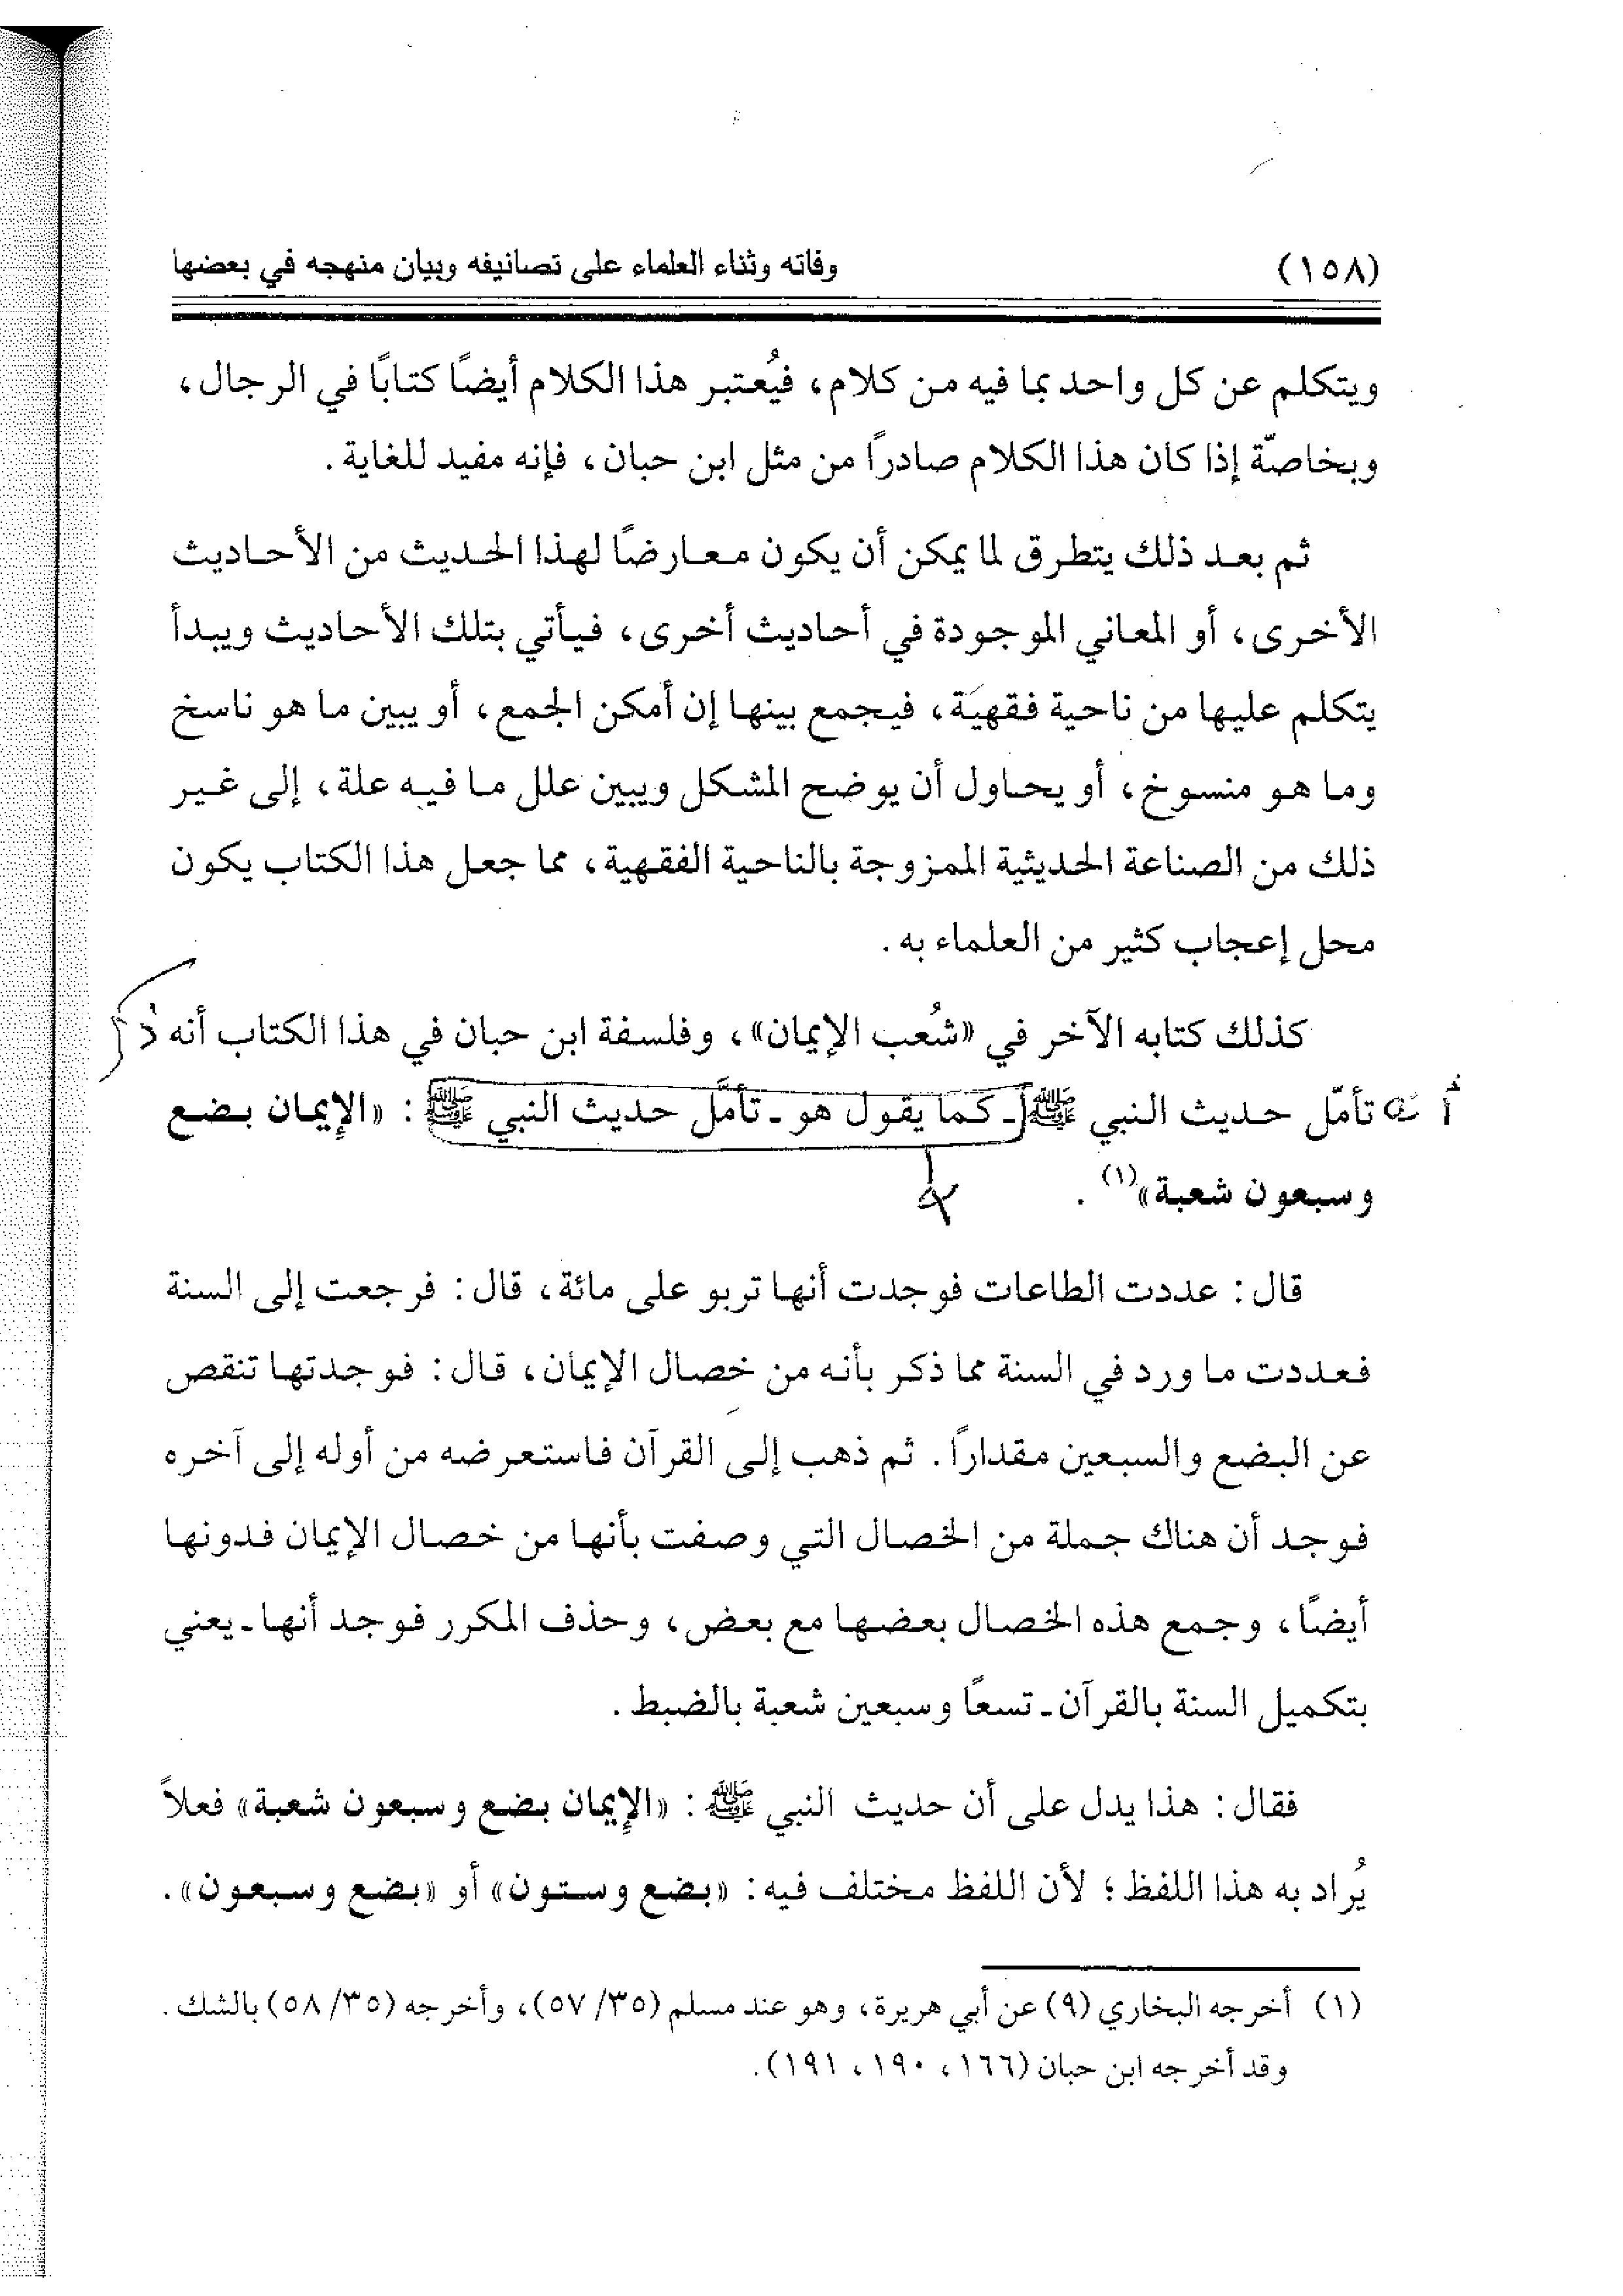 (١٥٨) وفاته وثناء العلماء على تصانيفه وبيان منهجه في بعضها
ويتكلم عن كل واحد بما فيه من كلام، فيُعتبر هذا الكلام أيضًا كتابًا في الرجال،
وبخاصّة إذا كان هذا الكلام صادرًا من مثل ابن حبان، فإنه مفيد للغاية.
ثم بعد ذلك يتطرق لما يمكن أن يكون معارضًا لهذا الحديث من الأحاديث
الأخرى، أو المعاني الموجودة في أحاديث أخرى، فيأتي بتلك الأحاديث ويبدأ
يتكلم عليها من ناحية فقهية، فيجمع بينها إن أمكن الجمع، أو يبين ما هو ناسخ
وما هو منسوخ، أو يحاول أن يوضح المشكل ويبين علل ما فيه علة، إلى غير
ذلك من الصناعة الحديثية الممزوجة بالناحية الفقهية، مما جعل هذا الكتاب يكون
محل إعجاب كثير من العلماء به.
كذلك كتابه الآخر في «شُعب الإيمان»، وفلسفة ابن حبان في هذا الكتاب أنه
تأمّل حديث النبي ﷺ ـ كما يقول هو ـ تأمَّل حديث النبي ﷺ: «الإيمان بضع
وسبعون شعبة»(١).
قال: عددت الطاعات فوجدت أنها تربو على مائة، قال: فرجعت إلى السنة
فعددت ما ورد في السنة مما ذكر بأنه من خصال الإيمان، قال: فوجدتها تنقص
عن البضع والسبعين مقدارًا. ثم ذهب إلى القرآن فاستعرضه من أوله إلى آخره
فوجد أن هناك جملة من الخصال التي وصفت بأنها من خصال الإيمان فدونها
أيضًا، وجمع هذه الخصال بعضها مع بعض، وحذف المكرر فوجد أنها ـ يعني
بتكميل السنة بالقرآن ـ تسعًا وسبعين شعبة بالضبط.
فقال: هذا يدل على أن حديث النبي ﷺ: «الإيمان بضع وسبعون شعبة» فعلاً
يُراد به هذا اللفظ؛ لأن اللفظ مختلف فيه: «بضع وستون» أو «بضع وسبعون».
(١) أخرجه البخاري (٩) عن أبي هريرة، وهو عند مسلم (٣٥/ ٥٧)، وأخرجه (٣٥/ ٥٨) بالشك.
وقد أخرجه ابن حبان (١٦٦، ١٩٠، ١٩١).